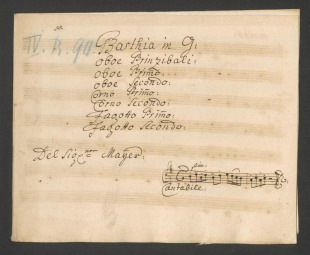 IV. B. 90
Barthia in G:
oboe Prinzibali:
oboe Primo:
oboe Secondo:
Corno Primo:
Corno Secondo:
Fagotto Primo:
Fagotto Secondo:
Del Sigre Mayer:
pia:
Cantabile